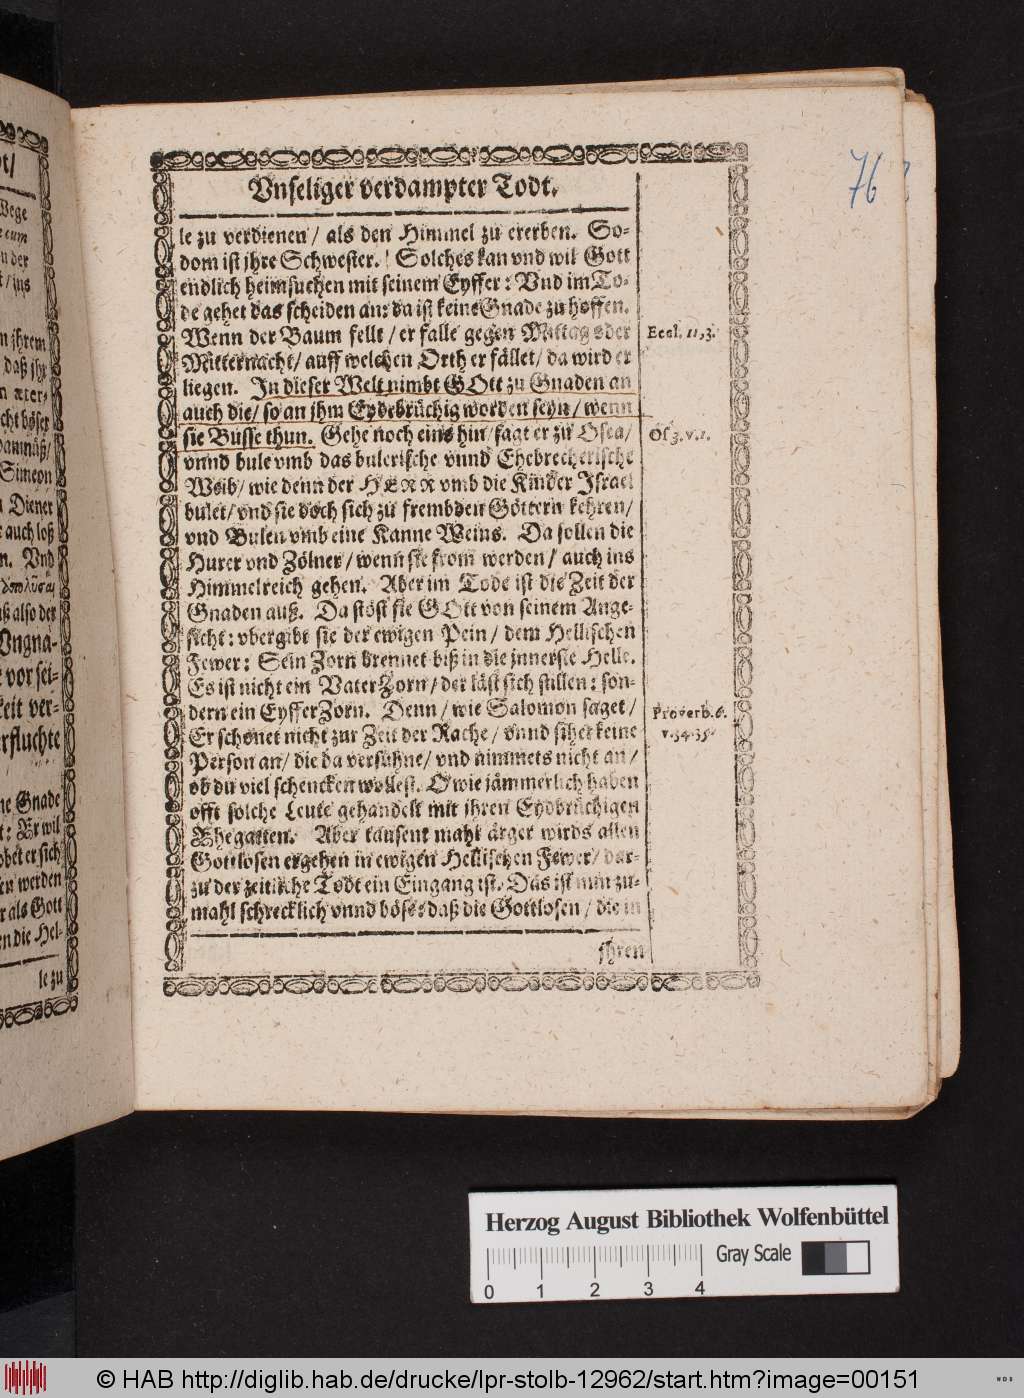 76
Vnseliger verdampter Todt.
le zu verdienen / als den Himmel zu ererben. So-
dom ist jhre Schwester. Solches kan vnd wil Gott
endlich heimsuchen mit seinem Eyffer: Vnd im To-
de gehet das scheiden an: da ist keine Gnade zu hoffen.
Wenn der Baum fellt / er falle gegen Mittag oder
Mitternacht / auff welchen Orth er fället / da wird er
liegen. In dieser Welt nimbt GOtt zu Gnaden an
auch die / so an jhm Eydbrüchig worden seyn / wenn
sie Busse thun. Gehe noch eins hin / sagt er zu Osea /
vnnd bule vmb das bulerische vnnd Ehebrecherische
Weib / wie denn der HERR vmb die Kinder Israel
bulet / vnd sie doch sich zu frembden Göttern kehren /
vnd Bulen vmb eine Kanne Weins. Da sollen die
Hurer vnd Zölner / wenn sie from werden / auch ins
Himmelreich gehen. Aber im Tode ist die Zeit der
Gnaden auß. Da stöst sie GOtt von seinem Ange-
sicht: vbergibt sie der ewigen Pein / dem Hellischen
Fewer: Sein Zorn brennet biß in die jnnerste Helle.
Es ist nicht ein VaterZorn / der läst sich stillen: son-
dern ein EyfferZorn. Denn / wie Salomon saget /
Er schonet nicht zur Zeit der Rache / vnnd sihet keine
Person an / die da versühne / vnd nimmets nicht an /
ob du viel schencken wollest. O wie jämmerlich haben
offt solche Leute gehandelt mit jhren Eydbrüchigen
Ehegatten. Aber tausent mahl ärger wirds allen
Gottlosen ergehen in ewigen Hellischen Fewer / dar-
zu der zeitliche Todt ein Eingang ist. Das ist nun zu-
mahl schrecklich vnnd böse: daß die Gottlosen / die in
jhren
Eccl. 11,3.
Os 3. v. 1.
Proverb. 6.
v. 34.35.
ot/
Wege
e cum
n der
t / ins
n jhrem
daß jhr
cht böser
Simeon
n Diener
e auch loß
n. Vnd
ß also der
Vngna-
vor sei-
keit ver-
erfluchte
ne Gnade
t: Er wil
obet er sich
en werden
r als Gott
en die Hel-
le zu
Herzog August Bibliothek Wolfenbüttel
Gray Scale
0 1 2 3 4
© HAB http://diglib.hab.de/drucke/lpr-stolb-12962/start.htm?image=00151